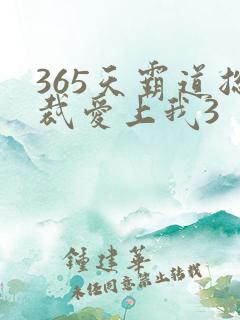 365天霸道总
裁爱上我3
鍾建華
未经同意禁止转载